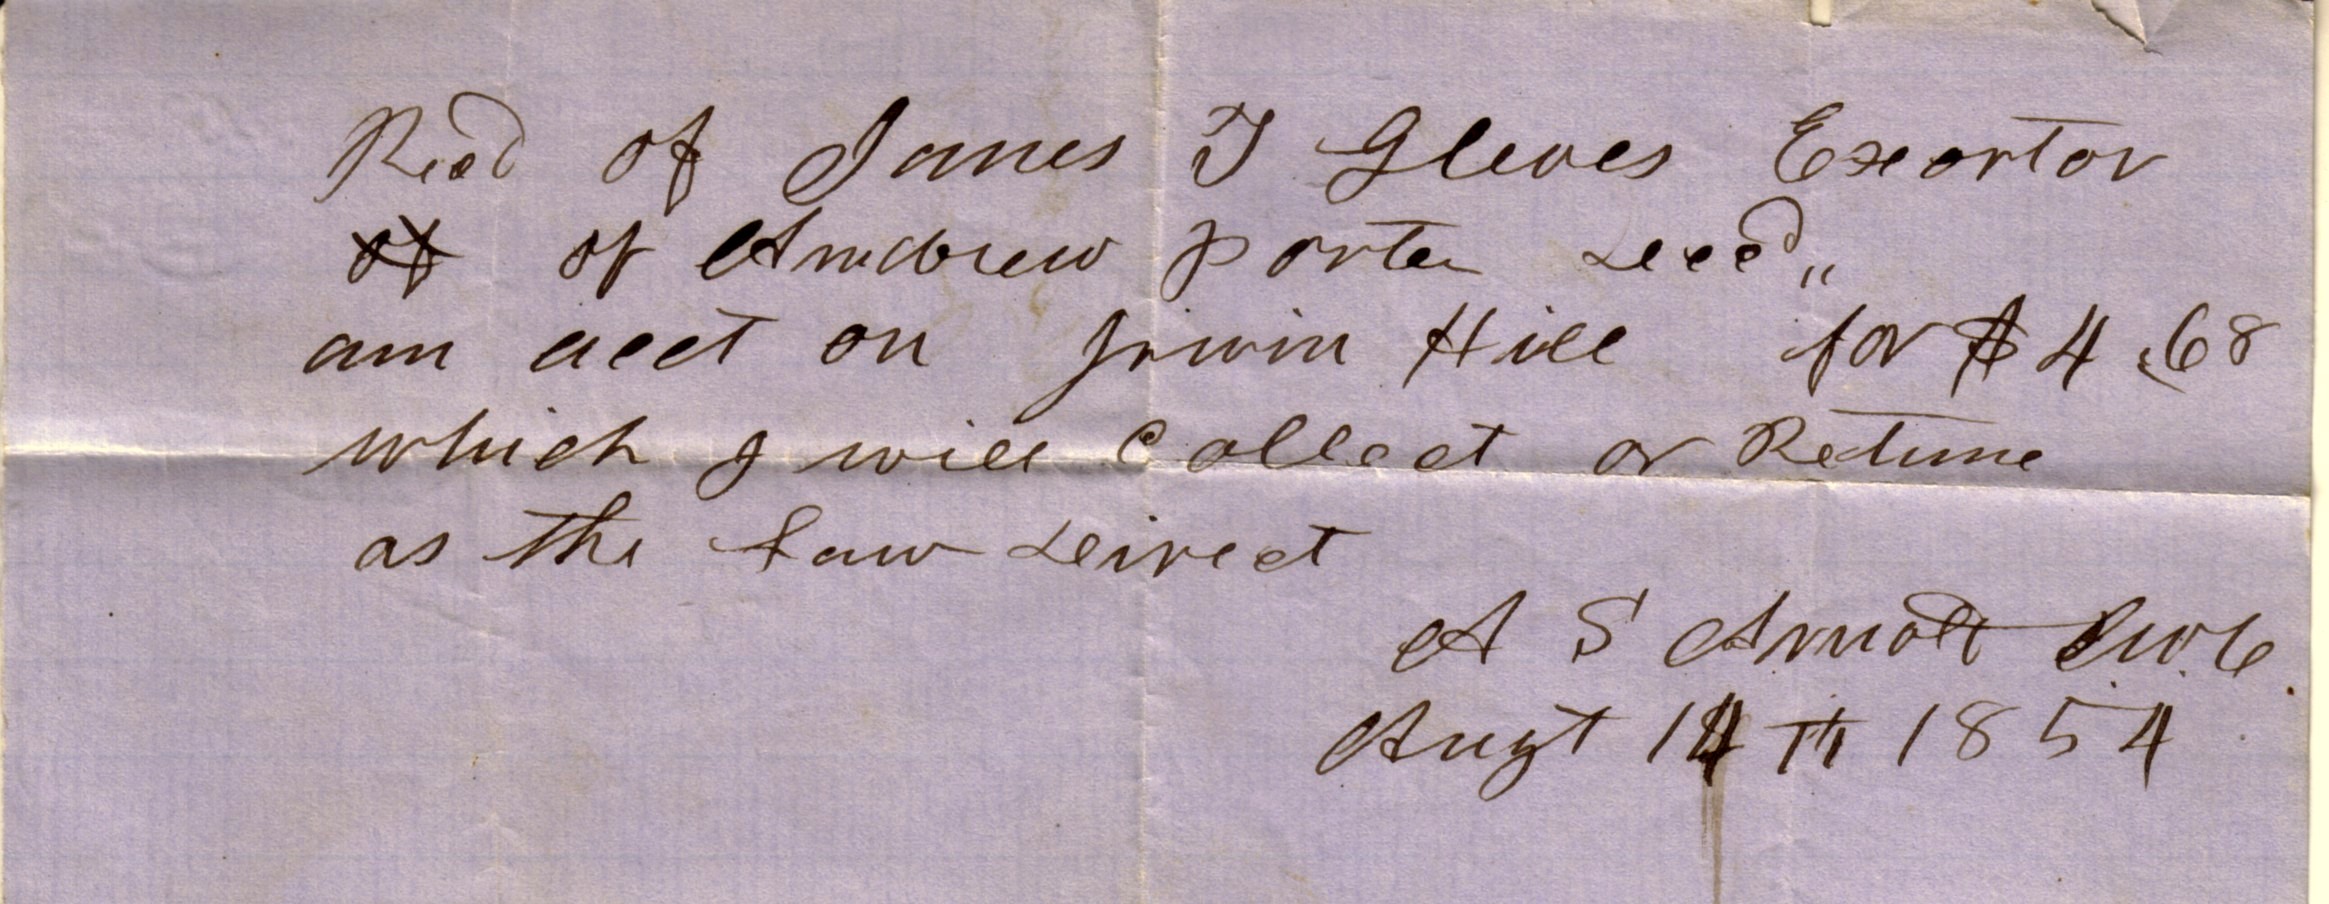 Recd of James T Gleves Exortor
of of Andrew Porter Decd"
am acct on Irwin Hill for $4.68
which I will Collect or Returne
as the Law Direct
A S Arnold
Augt 14th 1854